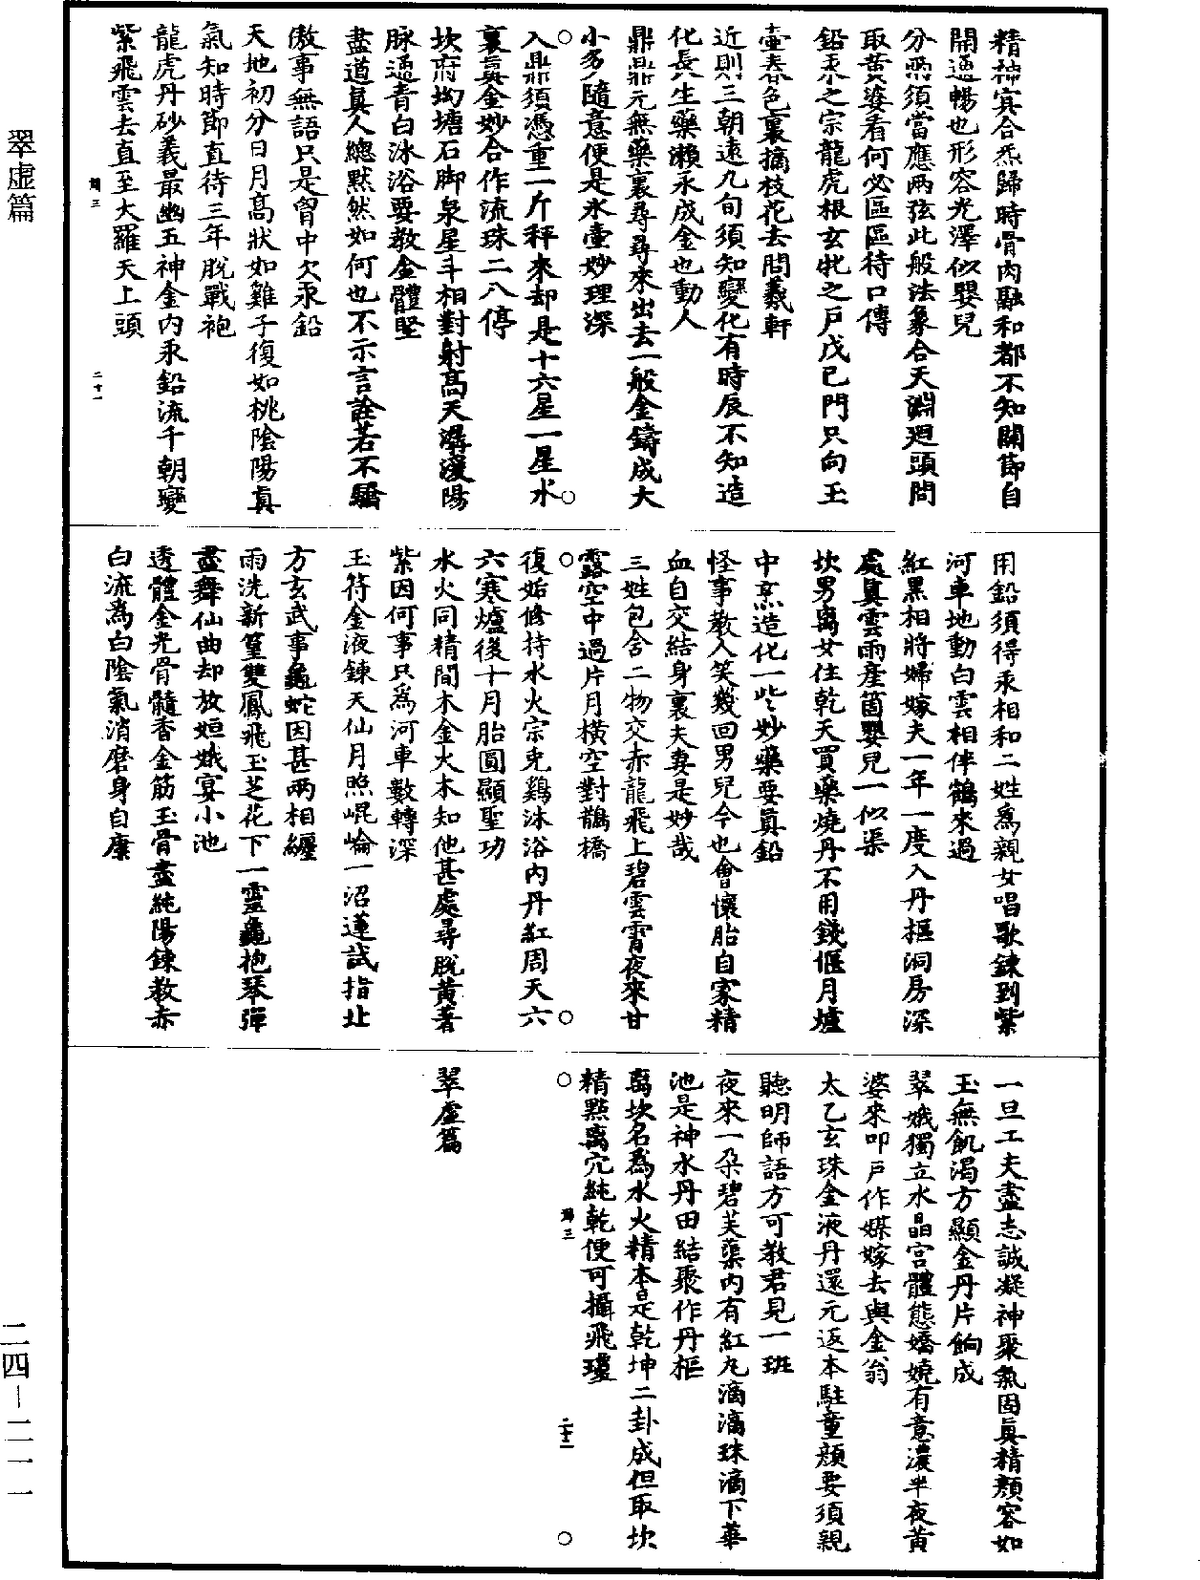 精神冥合炁歸時骨肉融和都不知關節自
開通暢也形容光澤似嬰兒
分兩須當應兩弦此般法象合天淵廻頭問
取黃婆看何必區區待口傳
鉛汞之宗龍虎根玄牝之戶戊己門只向玉
壺春色裏摘枝花去問羲軒
近則三朝遠九旬須知變化有時辰不知造
化長生藥瀨汞成金也動人
鼎鼎元無藥裏尋尋來出去一般金鑄成大
小多隨意便是氷壺妙理深
入鼎須憑重一斤秤來却是十六星一星水
裏眞金妙合作流珠二八停
坎府坳塘石脚泉星斗相對射高天潺湲陽
脉通青白沐浴要教金體堅
盡道眞人總默然如何也不示言詮若不驕
傲事無語只是胷中欠汞鉛
天地初分日月高狀如雞子復如桃陰陽眞
氣知時節直待三年脫戰袍
龍虎丹砂義最幽五神金內汞鉛流千朝變
紫飛雲去直至大羅天上頭
二十一
用鉛須得汞相和二姓爲親女唱歌鍊到紫
河車地動白雲相伴鶴來過
紅黑相將婦嫁夫一年一度入丹樞洞房深
處眞雲雨產箇嬰兒一似渠
坎男离女住乾天買藥燒丹不用錢偃月爐
中烹造化一些妙藥要眞鉛
怪事教人笑幾回男兒今也會懷胎自家精
血自交結身裏夫妻是妙哉
三姓包含二物交赤龍飛上碧雲霄夜來甘
露空中過片月橫空對鵲橋
復姤修持水火宗兎鷄沐浴內丹紅周天六
六寒爐後十月胎圓顯聖功
水火同精間木金火木知他甚處尋脫黃著
紫因何事只爲河車數轉深
玉符金液鍊天仙月照崐崘一沼蓮試指北
方玄武事龜蛇因甚兩相纏
雨洗新篁雙鳳飛玉芝花下一靈龜抱琴彈
盡舞仙曲却放姮娥宴小池
透體金光骨髓香金筋玉骨盡純陽鍊教赤
白流為白陰氣消磨身自康
一旦工夫盡志誠凝神聚氣固眞精顏容如
玉無飢渴方顯金丹片餉成
翠娥獨立水晶宮體態嬌嬈有意濃半夜黃
婆來叩戶作媒嫁去與金翁
太乙玄珠金液丹還元返本駐童顏要須親
聽明師語方可教君見一班
夜來一朶碧芙蕖內有紅丸滴滴珠滴下華
池是神水丹田結聚作丹樞
离坎名爲水火精本是乾坤二卦成但取坎
精點离穴純乾便可攝飛瓊
翠虛篇
翠虛篇
二四—二一一